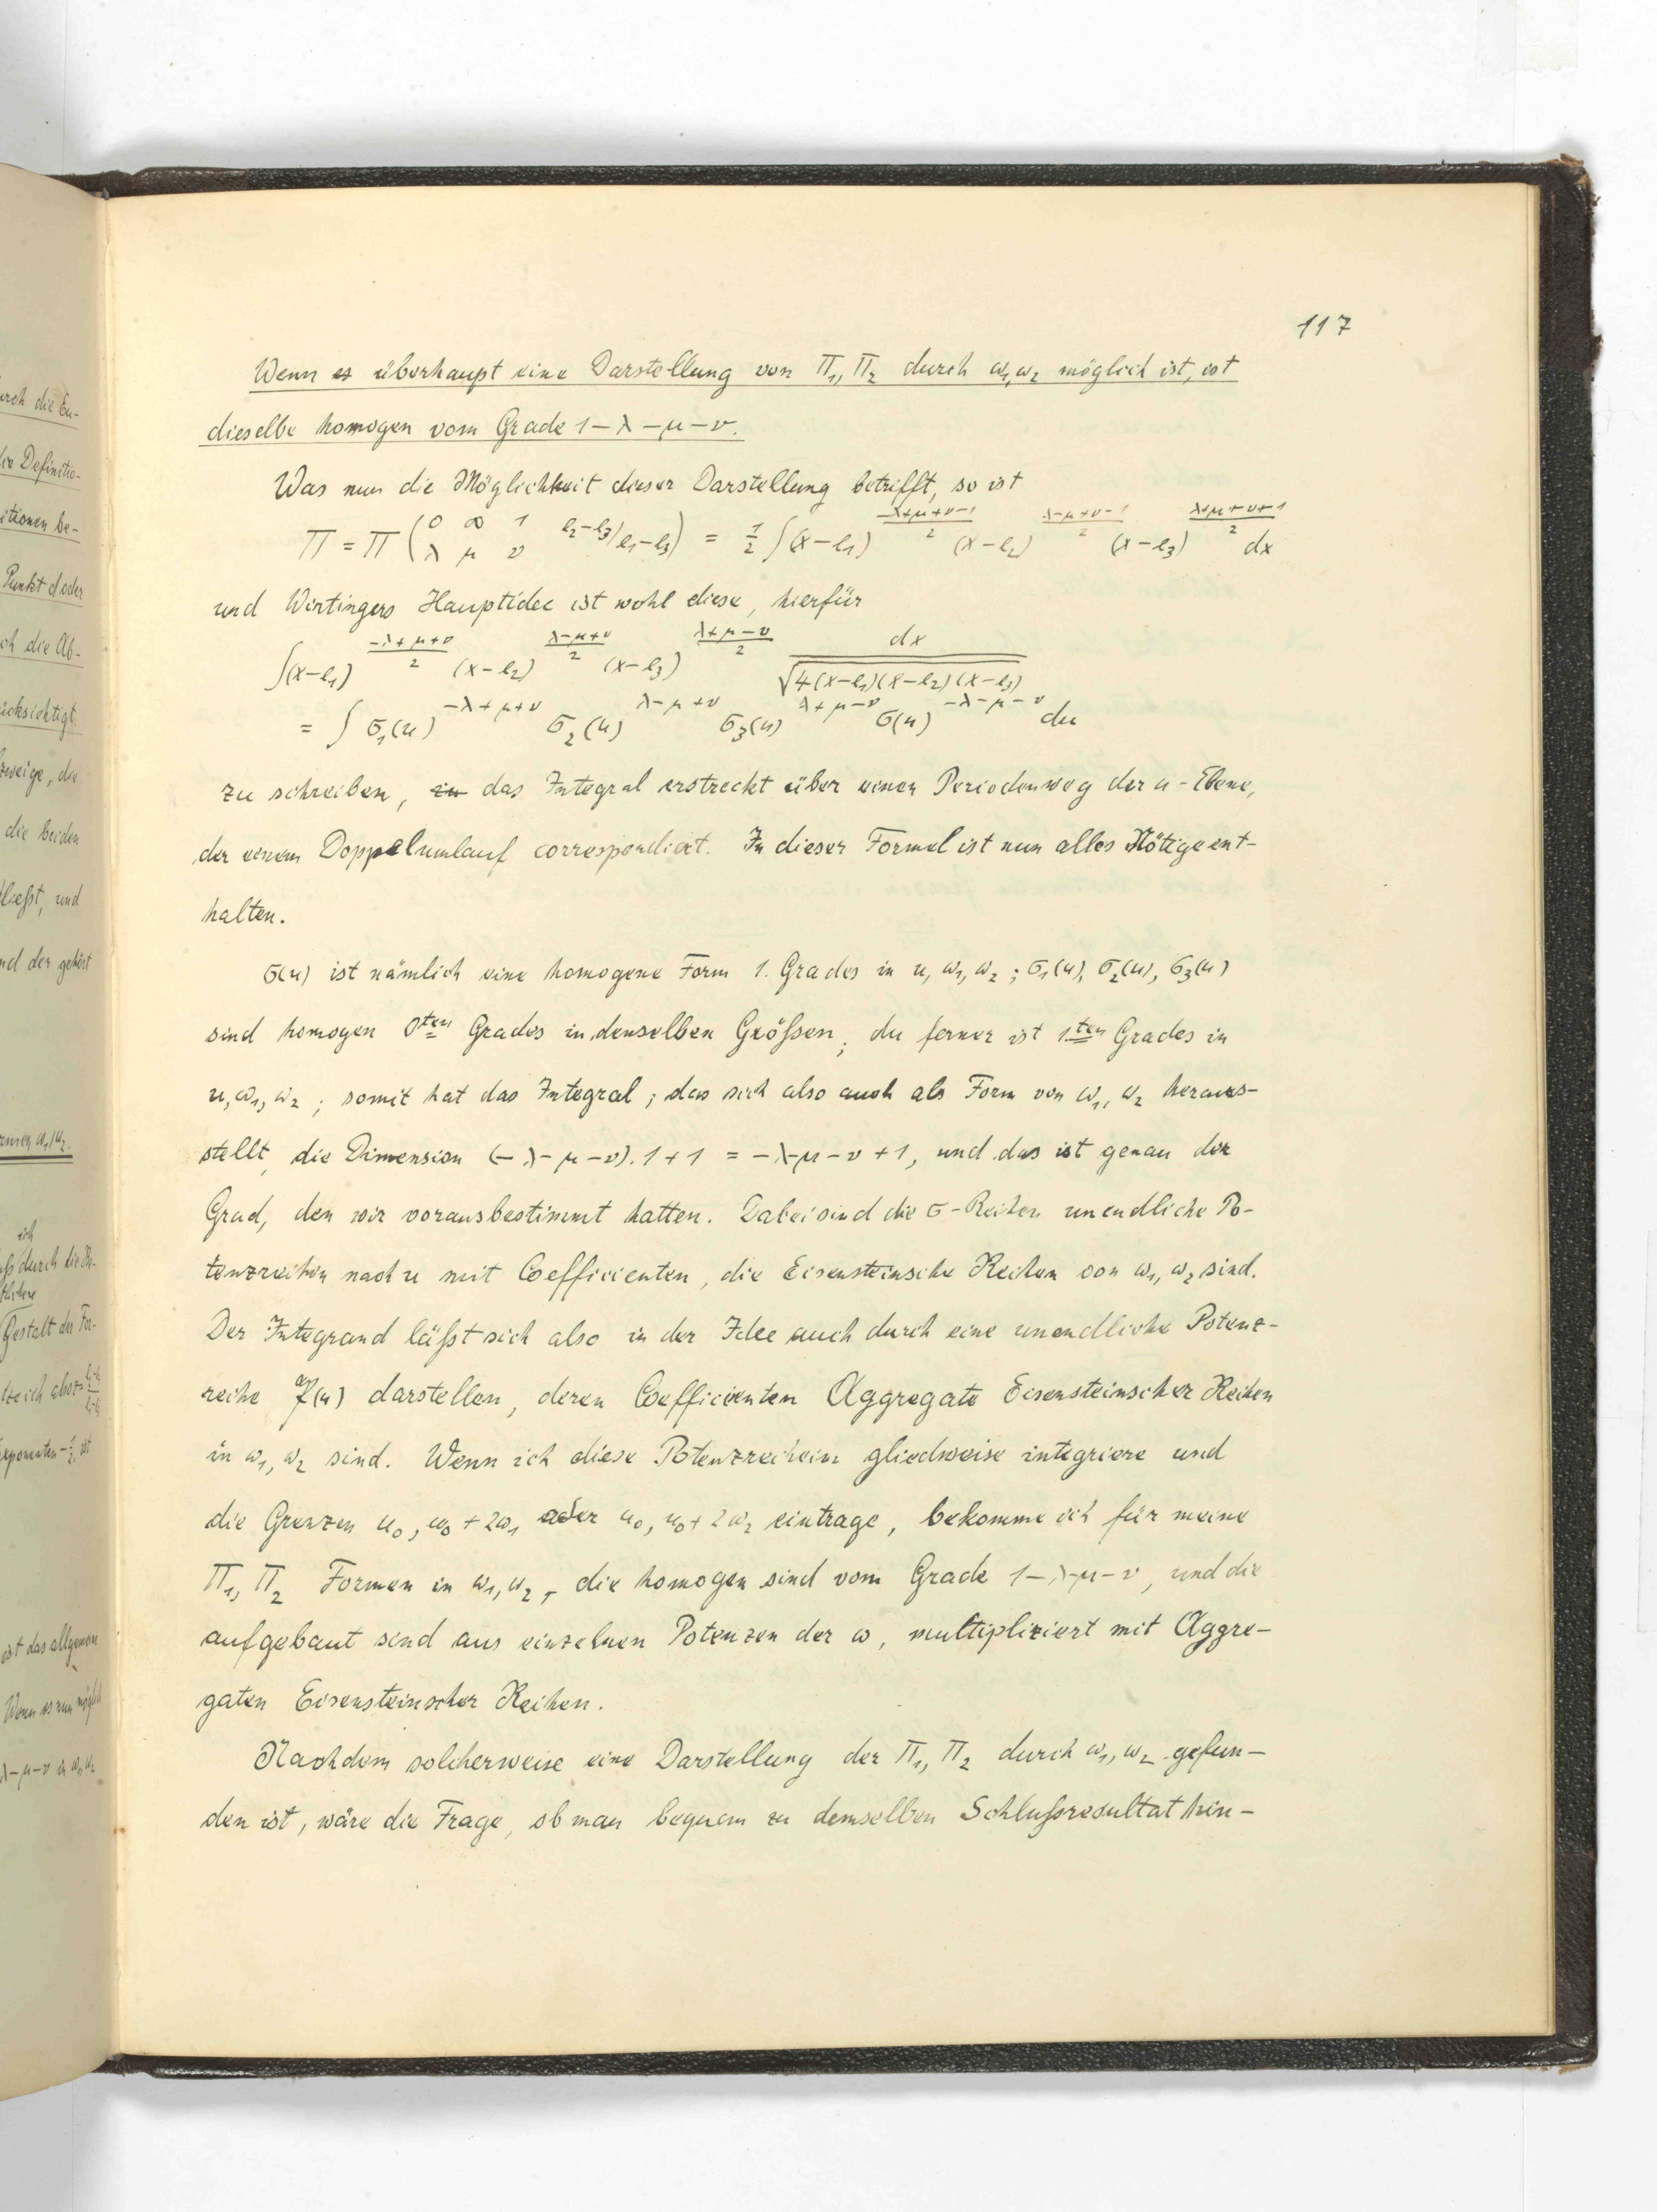 urch die Eu-
die Definitio-
itionen be-
Punkt d oder
ch die Ab-
ücksichtigt
zweige, die
die beiden
ließt, und
nd der gehört
ich
durch die
Gestalt der For-
exponenten -½, ist
ist das allgemeine
Wenn es nun möglich
λ-μ-ν in ω₁, ω₂
117
Wenn es überhaupt eine Darstellung von Π₁, Π₂ durch ω₁, ω₂ möglich ist, ist
dieselbe homogen vom Grade 1-λ-μ-ν.
Was nun die Möglichkeit dieser Darstellung betrifft, so ist
Π = Π (0 ∞ 1 / λ μ ν  e₂-e₃/e₁-e₃) = ½ ∫(x-e₁)^{(-λ+μ+ν-1)/2} (x-e₂)^{(λ-μ+ν-1)/2} (x-e₃)^{(λ+μ-ν+1)/2} dx
und Wirtingers Hauptidee ist wohl diese, hierfür
∫(x-e₁)^{(-λ+μ+ν)/2} (x-e₂)^{(λ-μ+ν)/2} (x-e₃)^{(λ+μ-ν)/2} dx/√4(x-e₁)(x-e₂)(x-e₃)
= ∫ σ₁(u)^{-λ+μ+ν} σ₂(u)^{λ-μ+ν} σ₃(u)^{λ+μ-ν} σ(u)^{-λ-μ-ν} du
zu schreiben, in das Integral erstreckt über einen Periodenweg der u-Ebene,
der einem Doppelumlauf correspondiert. In dieser Formel ist nun alles Nötige ent-
halten.
σ(u) ist nämlich eine homogene Form 1. Grades in u, ω₁, ω₂; σ₁(u), σ₂(u), σ₃(u)
sind homogen 0ten Grades in denselben Größen; du ferner ist 1ten Grades in
u, ω₁, ω₂; somit hat das Integral, das sich also auch als Form von ω₁, ω₂ heraus-
stellt, die Dimension (-λ-μ-ν).1+1 = -λ-μ-ν+1, und das ist genau der
Grad, den wir vorausbestimmt hatten. Dabei sind die σ-Reihen unendliche Po-
tenzreihen nach u mit Coefficienten, die Eisensteinsche Reihen von ω₁, ω₂ sind.
Der Integrand läßt sich also in der Idee auch durch eine unendliche Potenz-
reihe P(u) darstellen, deren Coefficienten Aggregate Eisensteinscher Reihen
in ω₁, ω₂ sind. Wenn ich diese Potenzreihein gliedweise integriere und
die Grenzen u₀, u₀+2ω₁ oder u₀, u₀+2ω₂ eintrage, bekomme ich für meine
Π₁, Π₂ Formen in ω₁, ω₂, die homogen sind vom Grade 1-λ-μ-ν, und die
aufgebaut sind aus einzelnen Potenzen der ω, multipliziert mit Aggre-
gaten Eisensteinscher Reihen.
Nachdem solcherweise eine Darstellung der Π₁, Π₂ durch ω₁, ω₂ gefun-
den ist, wäre die Frage, ob man bequem zu demselben Schlußresultat hin-